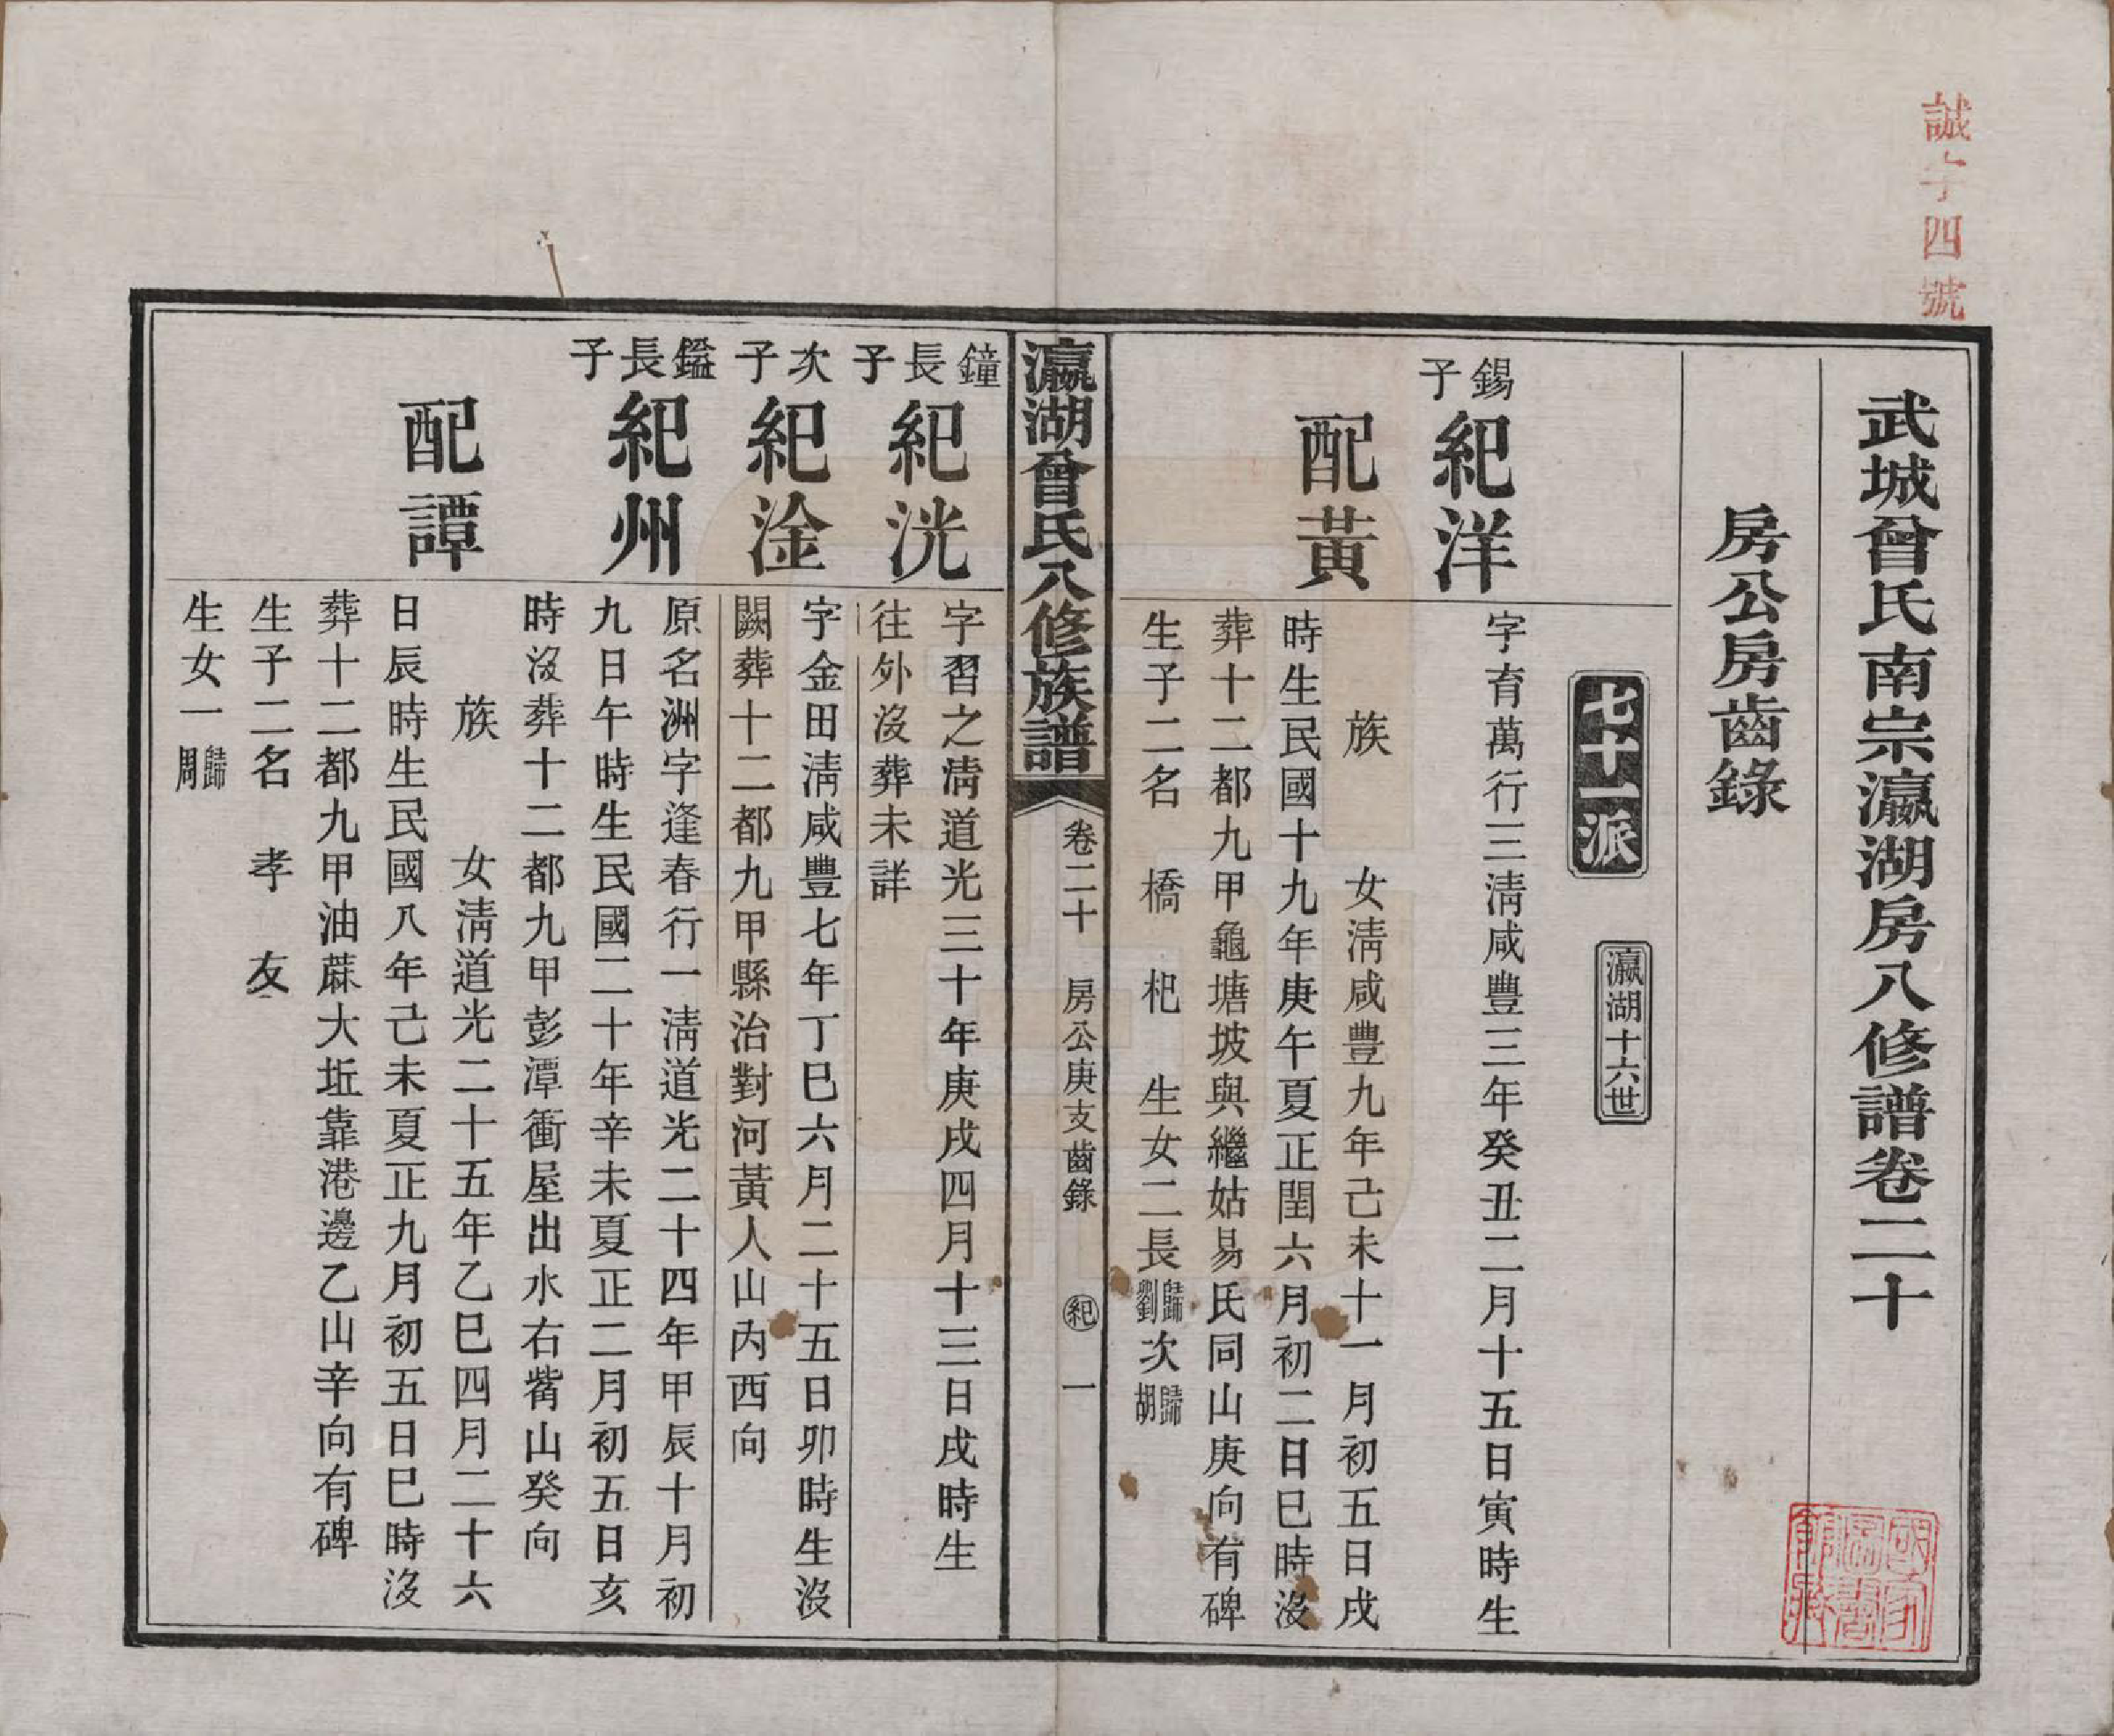 誠字四號
武城曾氏南宗瀛湖房八修譜卷二十
房公房齒錄
七十一派
瀛湖十六世
錫子
紀洋
字育萬行三淸咸豐三年癸丑二月十五日寅時生
配黃
族 女淸咸豐九年己未十一月初五日戌
時生民國十九年庚午夏正閏六月初二日巳時沒
葬十二都九甲龜塘坡與繼姑易氏同山庚向有碑
生子二名 橋 杞 生女二長歸劉次歸胡
瀛湖曾氏八修族譜
卷二十 房公庚支齒錄 紀 一
鐘長子
紀洸
字習之淸道光三十年庚戌四月十三日戌時生
往外沒葬未詳
次子
紀淦
字金田淸咸豐七年丁巳六月二十五日卯時生沒
闕葬十二都九甲縣治對河黃人山內西向
鎰長子
紀州
原名洲字逢春行一淸道光二十四年甲辰十月初
九日午時生民國二十年辛未夏正二月初五日亥
時沒葬十二都九甲彭潭衝屋出水右觜山癸向
配譚
族 女淸道光二十五年乙巳四月二十六
日辰時生民國八年己未夏正九月初五日巳時沒
葬十二都九甲油蔴大坵靠港邊乙山辛向有碑
生子二名 孝 友
生女一歸周
國家圖書館藏